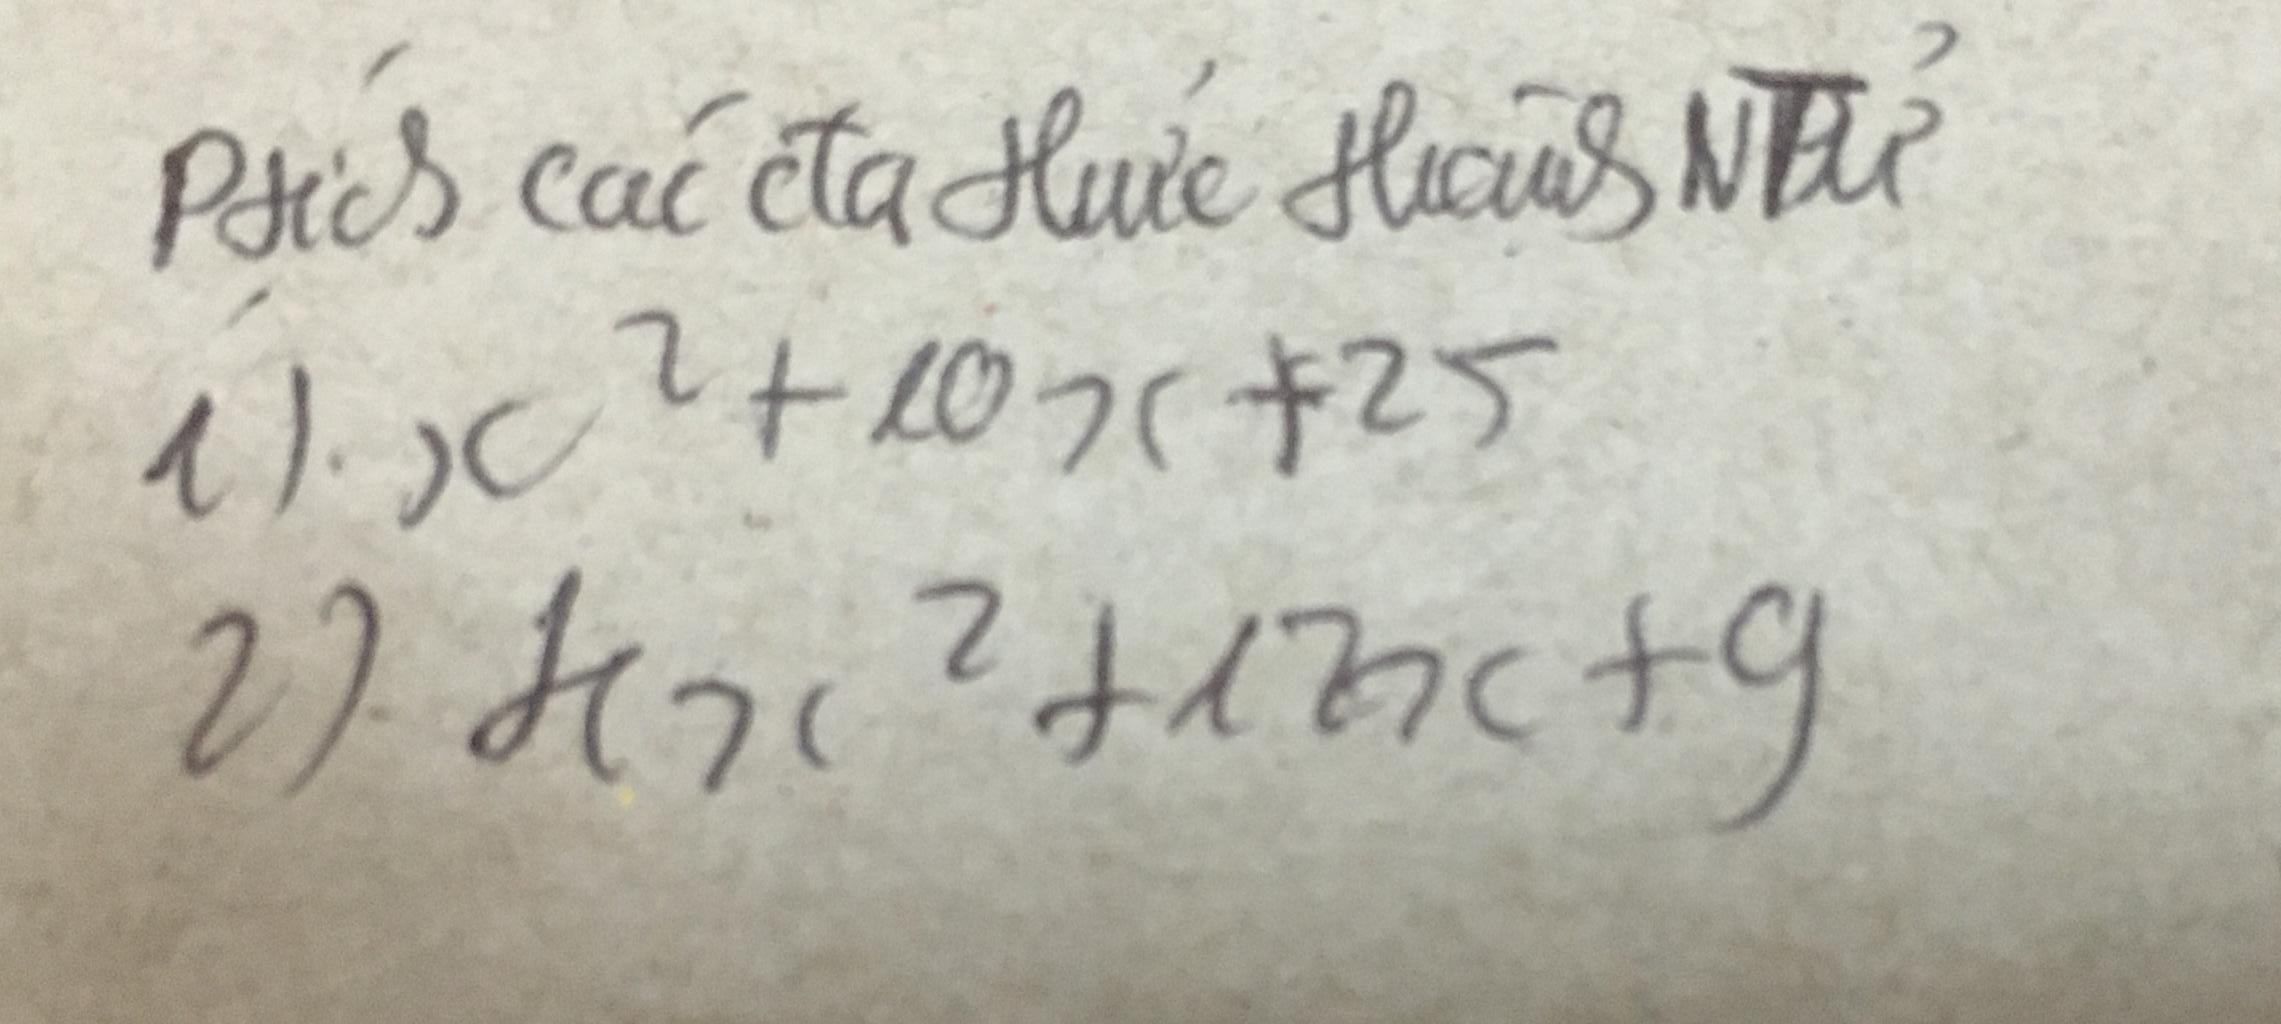 Ptích các đa thức thành NTử
1). x² + 10x + 25
2). 4x² + 12x + 9